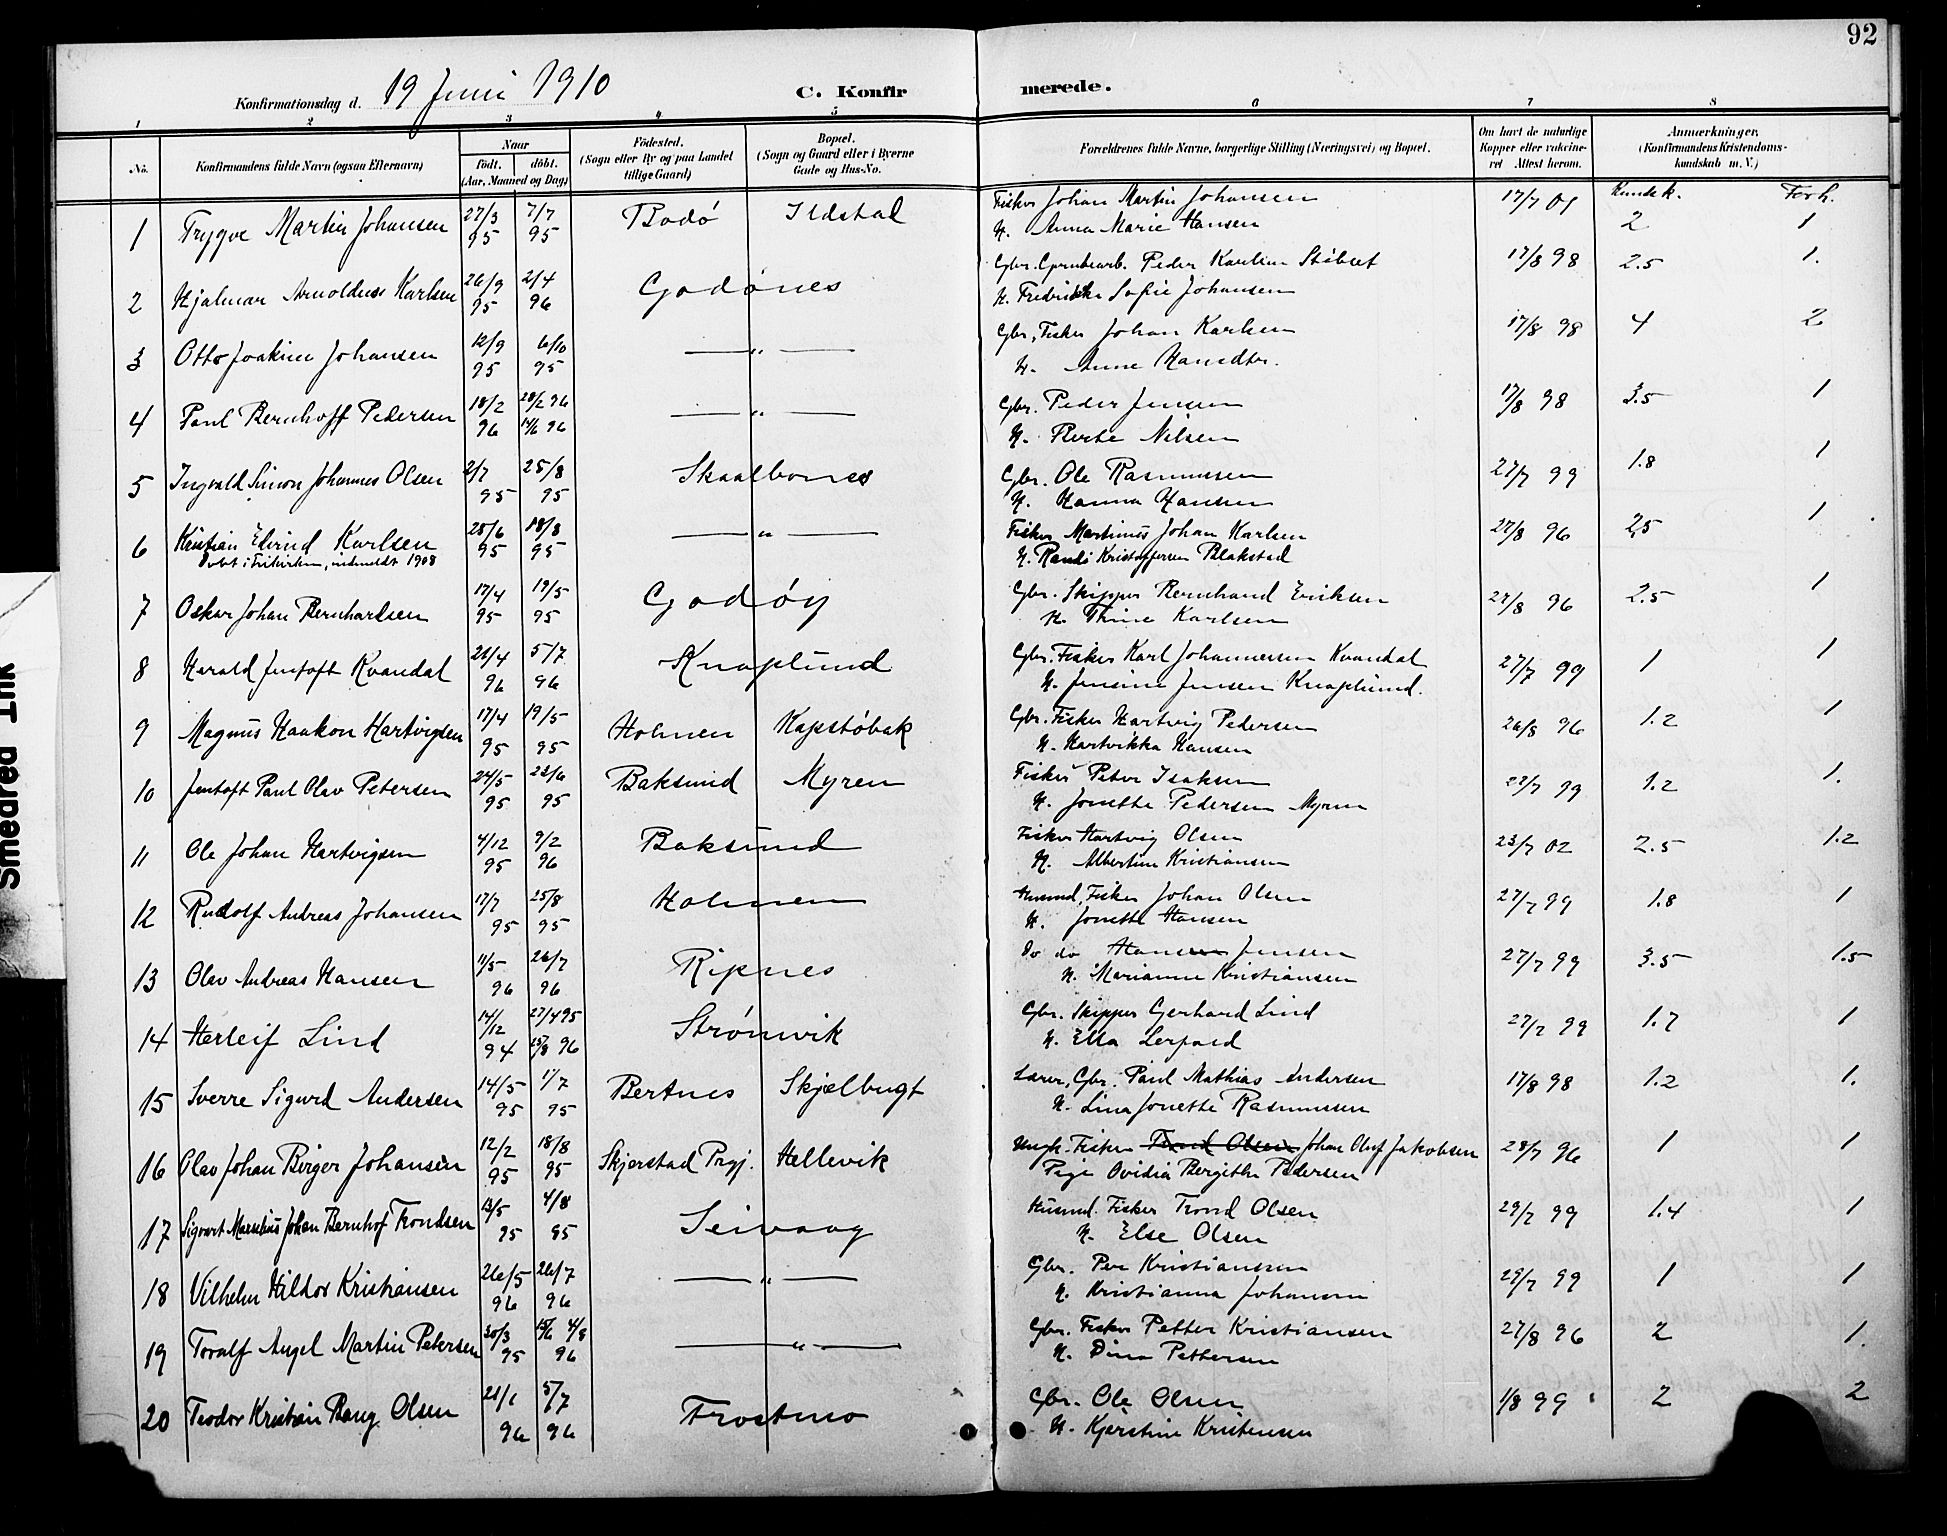 92
Konfirmationsdag d. 19 Juni 1910
C. Konfirmerede.
1 2 3 4 5 6 7 8
No.
Konfirmandens fulde Navn (ogsaa Efternavn)
Naar
födt. döbt.
(Aar, Maaned og Dag)
Födested.
(Sogn eller By og paa Landet
tillige Gaard)
Bopæl.
(Sogn og Gaard eller i Byerne
Gade og Hus-No.
Forældrenes fulde Navne, borgerlige Stilling (Næringsvei) og Bopæl.
Om havt de naturlige
Kopper eller vaccine-
ret Attest herom.
Anmærkninger.
(Konfirmandens Kristendoms-
kundskab m. V.)
Kundsk. Forh.
1 Trygve Martin Johansen 27/3 95 7/7 95 Bodø Ildstal Fisker Johan Martin Johansen 17/7 01 2 1
H. Anna Marie Hansen
2 Hjalmar Arnoldus Karlsen 26/9 95 2/4 96 Godønes Gbr. Peder Karelius 17/8 98 2.5 1.
H. Fredrikke Sofie Johansen
3 Otto Joakim Johansen 12/9 95 6/10 95 — „ — Gbr, Fisker Johan Karlsen 17/8 98 4 2
H. Anne Hansdtr.
4 Paul Bernhoff Pedersen 18/2 96 28/2 96 14/6 96 — „ — Gbr. Peder Jensen 17/8 98 3.5 1
H. Berte Nilsen
5 Ingvald Simon Johannes Olsen 2/7 95 25/8 95 Skaalbones Gbr. Ole Rasmussen 27/7 99 1.8 1
H. Hanna Hansen
6 Kristian Edvind Karlsen 28/6 95 18/8 95 — „ — Fisker Martinus Johan Karlsen 27/8 96 2,5 1
Døbt i Frikirken, indmeldt 1908 H. Randi Kristoffersen Blakstad
7 Oskar Johan Bernhartsen 17/4 95 19/5 95 Godøy Gbr. Skipper Bernhard Eriksen 27/8 96 2.5 1
H. Thine Karlsen
8 Harald Jentoft Kvandal 26/4 96 5/7 96 Knaplund Gbr. Fisker Karl Johannessen Kvandal 27/7 99 1 1
H. Jensine Jensen Knaplund.
9 Magnus Haakon Hartvigsen 17/4 95 19/5 95 Holmen Kapstøbak Gbr. Fisker Hartvig Pedersen 26/8 96 1.2 1
H. Hartvikka Hansen
10 Jentoft Paul Olav Petersen 24/5 95 23/6 95 Baksund Myren Fisker Peter Isaksen 27/7 99 1.2 1.
H. Jonette Pedersen Myren
11 Ole Johan Hartvigsen 4/12 95 9/2 96 Baksund Fisker Hartvig Olsen 23/7 02 2.5 1.2
H. Albertine Kristiansen
12 Rudolf Andreas Johansen 17/7 95 25/8 95 Holmen Husmd, Fisker Johan Olsen 27/7 99 1.8 1
H. Jonette Hansen
13 Olav Andreas Hansen 11/5 96 26/7 96 Ripnes Do do Hans Jensen 27/7 99 3.5 1.5
H. Marianne Kristiansen
14 Herleif Lind 14/12 94 27/4 95 15/8 96 Strømvik Gbr. Skipper Gerhard Lind 27/7 99 1.7 1
H. Ella
15 Sverre Sigurd Andersen 14/5 95 1/7 95 Bertnes Skjælbugt Lærer, Gbr. Paul Mathias Andersen 17/8 98 1.2 1.
H. Lina Jonette Rasmussen
16 Olav Johan Birger Johansen 12/2 95 18/8 95 Skjerstad Prgj. Hellevik Ungk. Fisker Trond Olsen Johan Oluf Jakobsen 28/7 96 1 1
Pige Ovidia Bergithe Pedersen
17 Sigvart Marselius Johan Bernhof Trondsen 13/5 95 4/8 95 Seivaag Husmd. Fisker Trond Olsen 29/7 99 1.4 1
H. Else Olsen
18 Vilhelm Hildor Kristiansen 26/5 96 26/7 96 — „ — Gbr. Per Kristiansen 29/7 99 1 1
H. Kristianna Johansen
19 Toralf Angel Martin Petersen 30/3 95 15/6 4/8 96 — „ — Gbr. Fisker Petter Kristiansen 27/8 96 2 1.
H. Dina Pettersen
20 Teodor Kristian Bang Olsen 21/1 96 5/7 96 Frostmo Gbr. Ole Olsen 1/8 99 2 2
H. Kjerstine Kristensen
Smedred Ink